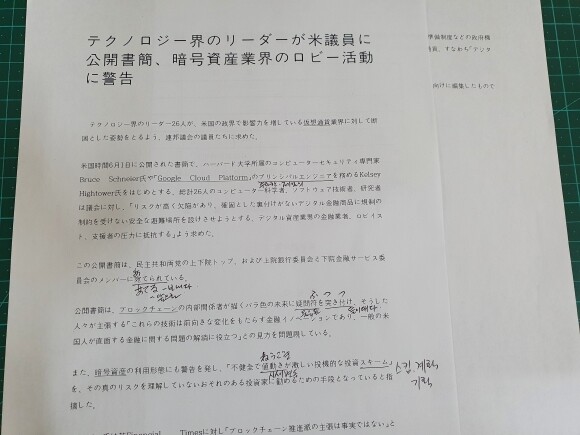 テクノロジー界のリーダーが米議員に
公開書簡、暗号資産業界のロビー活動
に警告
テクノロジー界のリーダー26人が、米国の政界で影響力を増している仮想通貨業界に対して断
固とした姿勢をとるよう、連邦議会の議員たちに求めた。
米国時間6月1日に公開された書簡で、ハーバード大学所属のコンピューターセキュリティ専門家
Bruce Schneier氏や「Google Cloud Platform」のプリンシパルエンジニアを務めるKelsey
Hightower氏をはじめとする、総計26人のコンピューター科学者、ソフトウェア技術者、研究者
は議会に対し、「リスクが高く欠陥があり、確固とした裏付けがないデジタル金融商品に規制の
制約を受けない安全な避難場所を設けさせようとする、デジタル資産業界の金融業者、ロビイス
ト、支援者の圧力に抵抗する」よう求めた。
この公開書簡は、民主共和両党の上下院トップ、および上院銀行委員会と下院金融サービス委
員会のメンバーに宛てられている。
あ
ふつう
公開書簡は、ブロックチェーンの内部関係者が描くバラ色の未来に疑問符を突き付け、そうした
人々が主張する「これらの技術は前向きな変化をもたらす金融イノベーションであり、一般の米
国人が直面する金融に関する問題の解決に役立つ」との見方を問題視している。
ねうごき
また、暗号資産の利用形態にも警告を発し、「不健全で値動きが激しい投機的な投資スキーム」
스킴 계획
기획
を、その真のリスクを理解していないおそれのある投資家に勧めるための手段となっていると指
摘した。
Financial Timesに対し「ブロックチェーン推進派の主張は事実ではない」と
準備制度などの政府機
すなわち「デジタ
向けに編集したもので